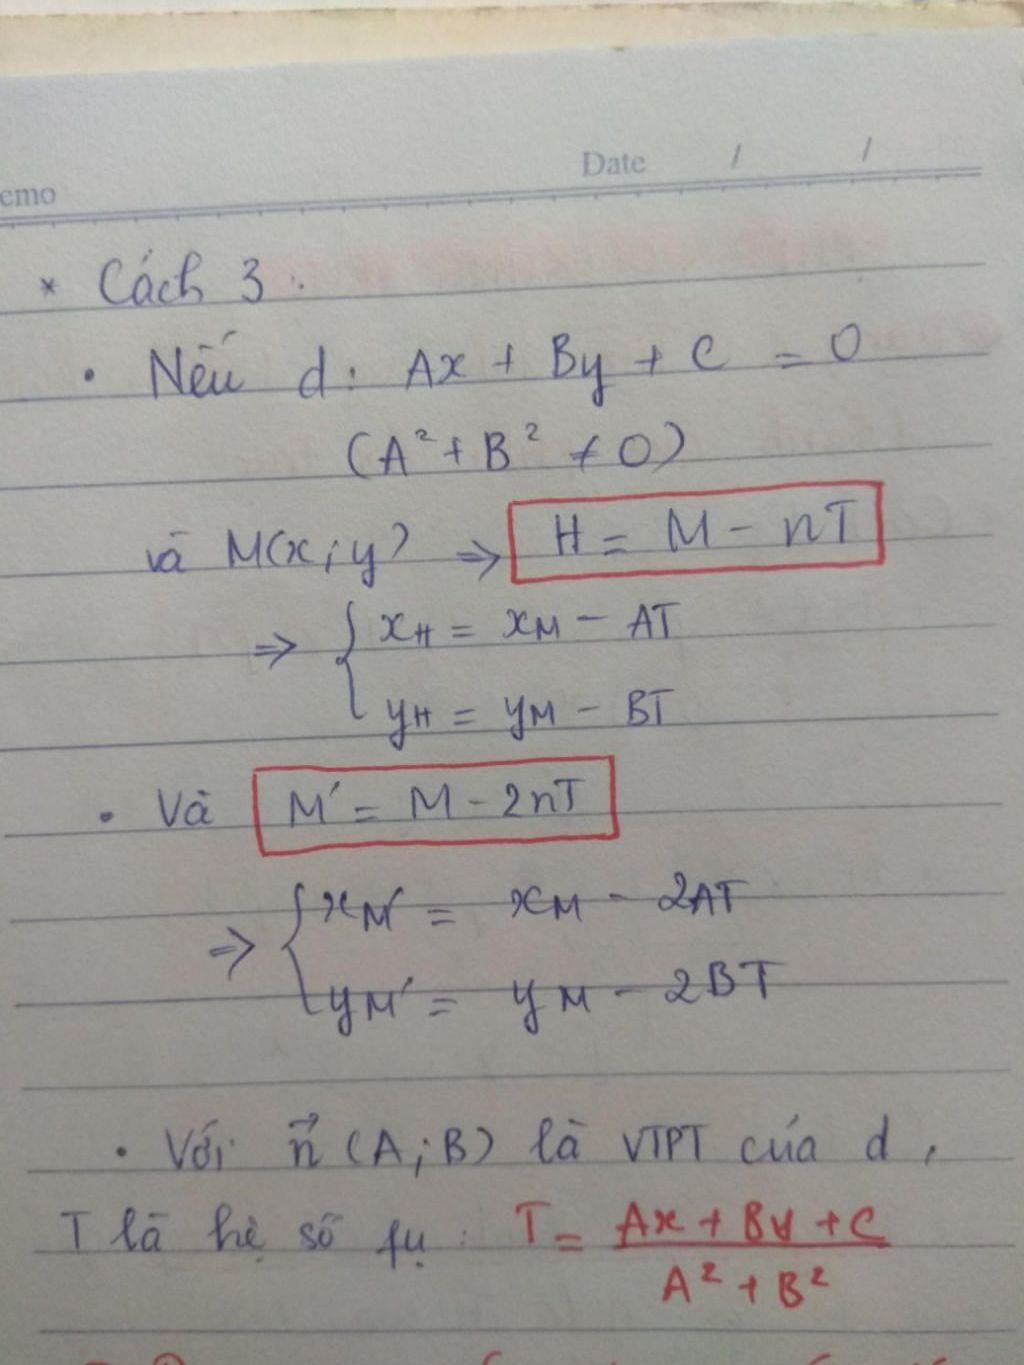 emo
Date / /
* Cách 3 :
• Nếu d : Ax + By + C = 0
(A² + B² ≠ 0)
và M(x;y) ⇒ H = M - nT
⇒ { xH = xM - AT
yH = yM - BT
• Và M' = M - 2nT
⇒ { xM' = xM - 2AT
yM' = yM - 2BT
• Với n⃗ (A;B) là VTPT của d,
T là hệ số fụ : T = (Ax + By + C) / (A² + B²)